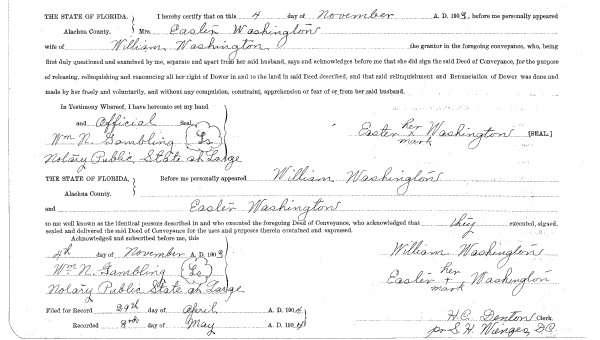 THE STATE OF FLORIDA, I hereby certify that on this 4 day of November A. D. 1903, before me personally appeared
Alachua County. Mrs. Easter Washington
wife of William Washington the grantor in the foregoing conveyance, who, being
first duly questioned and examined by me, separate and apart from her said husband, says and acknowledges before me that she did sign the said Deed of Conveyance, for the purpose
of releasing, relinquishing and renouncing all her right of Dower in and to the land in said Deed described, and that said relinquishment and Renunciation of Dower was done and
made by her freely and voluntarily, and without any compulsion, constraint, apprehension or fear of or from her said husband.
In Testimony Whereof, I have hereunto set my hand
and Official Seal.
Wm N. Gambling Ls
Notary Public State at Large
her
Easter x Washington [SEAL]
mark
THE STATE OF FLORIDA, Before me personally appeared William Washington
Alachua County.
and Easter Washington
to me well known as the identical persons described in and who executed the foregoing Deed of Conveyance, who acknowledged that they executed, signed,
sealed and delivered the said Deed of Conveyance for the uses and purposes therein contained and expressed.
Acknowledged and subscribed before me, this
4th day of November A. D. 1903
Wm N. Gambling Ls
Notary Public State at Large
William Washington
her
Easter + Washington
mark
Filed for Record 29th day of April A. D. 1904
Recorded day of May A. D. 190
H. C. Denton Clerk,
pr S. H. Wienges, D.C.